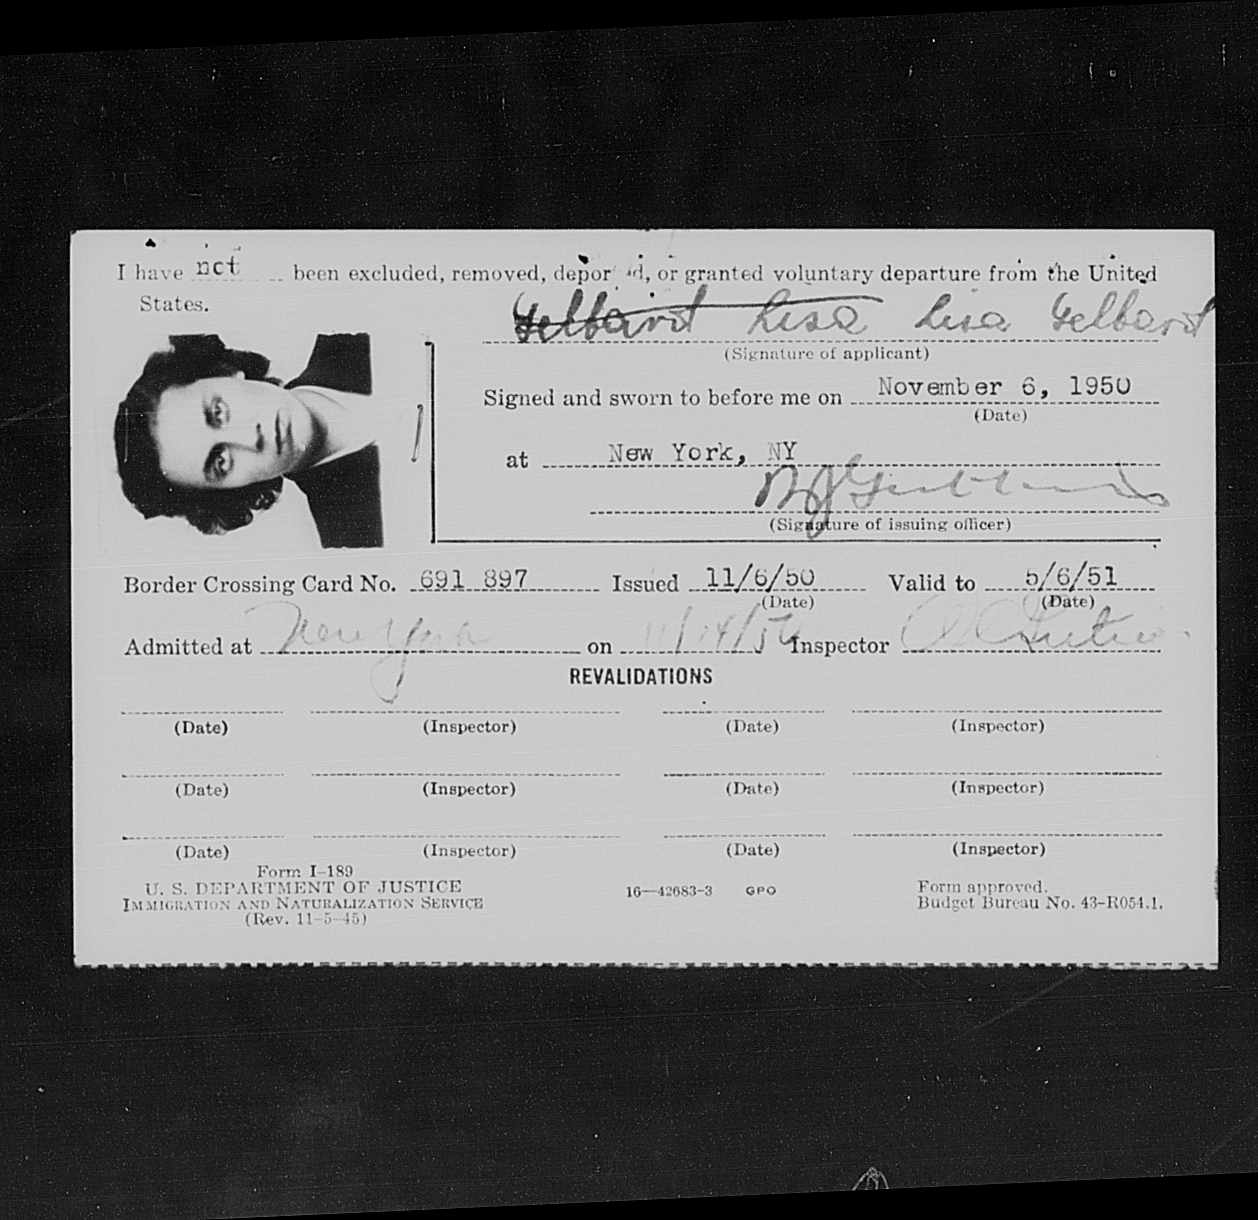 I have not been excluded, removed, depor d, or granted voluntary departure from the United
States.
Gelbard Lisa Lisa Gelbard
(Signature of applicant)
Signed and sworn to before me on November 6, 1950
(Date)
at New York, NY
(Signature of issuing officer)
Border Crossing Card No. 691 897 Issued 11/6/50 Valid to 5/6/51
(Date) (Date)
Admitted at New York on 11/14/50 Inspector
REVALIDATIONS
(Date) (Inspector) (Date) (Inspector)
(Date) (Inspector) (Date) (Inspector)
(Date) (Inspector) (Date) (Inspector)
Form I-189
U. S. DEPARTMENT OF JUSTICE
IMMIGRATION AND NATURALIZATION SERVICE
(Rev. 11-5-45)
16—42683-3 GPO
Form approved.
Budget Bureau No. 43-R054.1.